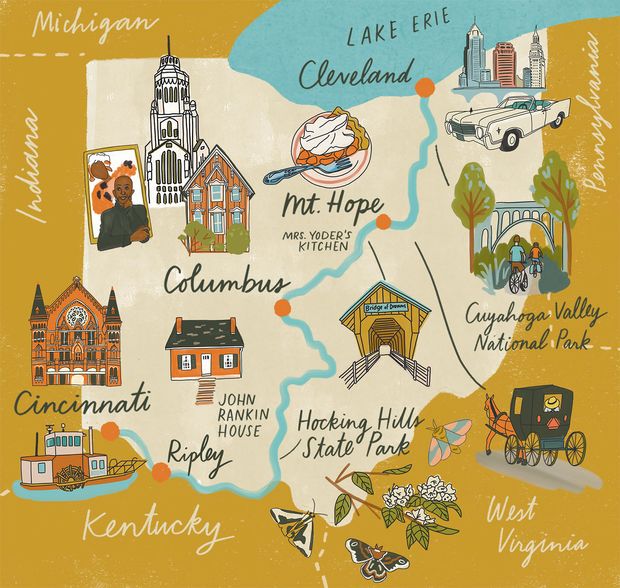 Michigan
LAKE ERIE
Cleveland
Pennsylvania
Indiana
Mt. Hope
MRS. YODER'S
KITCHEN
Columbus
Bridge of Dreams
Cuyahoga Valley
National Park
Cincinnati
JOHN
RANKIN
HOUSE
Hocking Hills
State Park
Ripley
Kentucky
West
Virginia